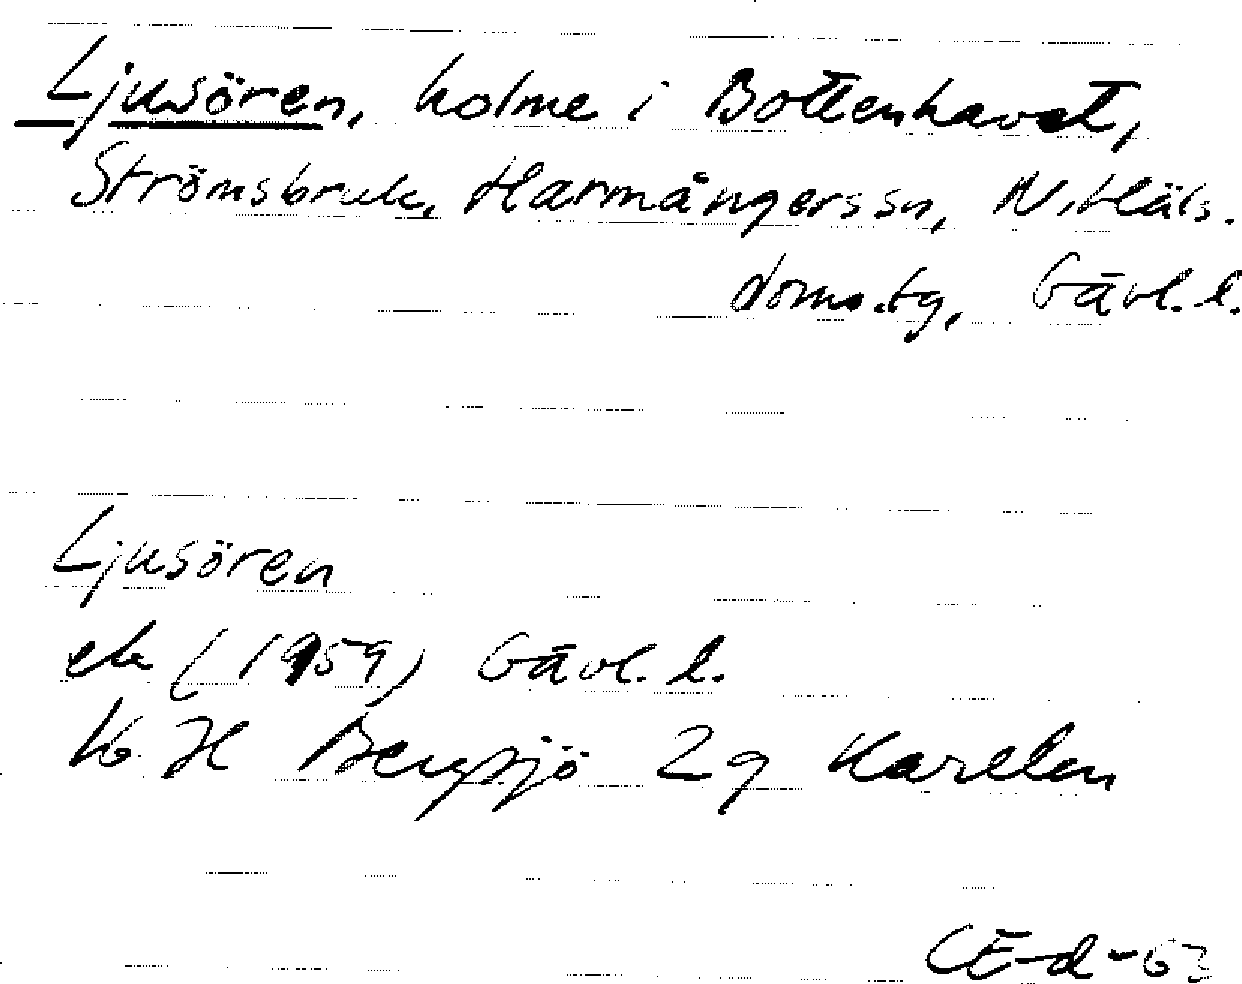 Ljusören, holme i Bottenhavet,
Strömsbruk, Harmångerssn, N. Häls.
doms.tg, Gävl. l.
Ljusören
ek (1959) Gävl. l.
16 H Bergsjö 2g
CEd-63